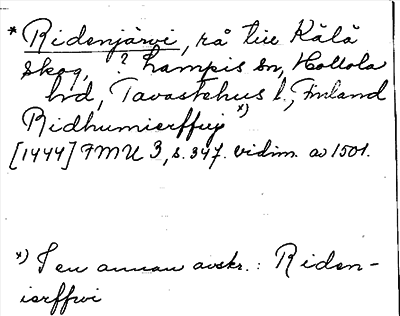 * Ridenjärvi, rå till Kälä
skog, ? Lampis sn, Hollola
hd, Tavastehus l., Finland
Ridhumierffuj *)
[1444] FMU 3, s. 347. vidim. av 1501.
*) I en annan avskr.: Riden-
ierffwi